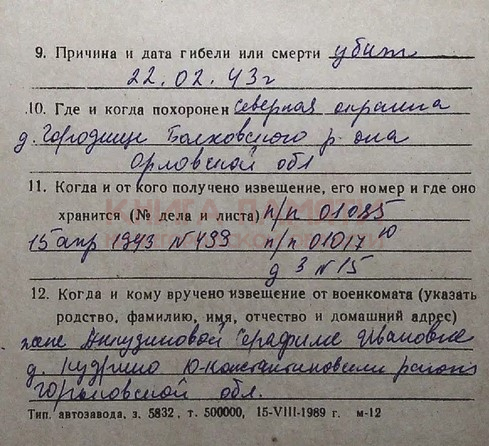 9. Причина и дата гибели или смерти убит
22.02.43г
10. Где и когда похоронен северная окраина
д. Городище Болховского р-она
Орловской обл
11. Когда и от кого получено извещение, его номер и где оно
хранится (№ дела и листа) п/п 01085
15 апр 1943 № 499 п/п 01017 ю
д 3 № 15
12. Когда и кому вручено извещение от военкомата (указать
родство, фамилию, имя, отчество и домашний адрес)
жене Серафиме Ивановне
д. Кудрино Ю-Константиновский района
Горьковской обл.
Тип. автозавода, з. 5832, т. 500000, 15-VIII-1989 г. м-12
КНИГА ПАМЯТИ